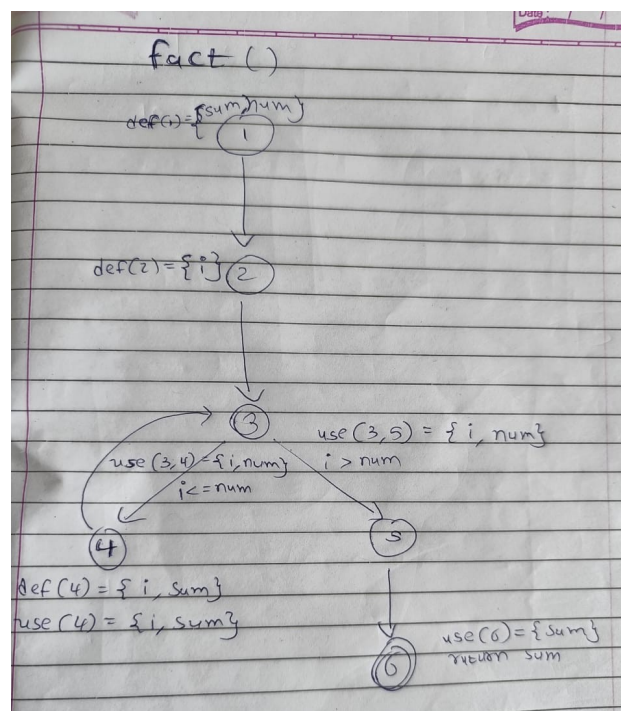 Date: / /
fact ()
def(1)={sum,num}
1
def(2)={i}
2
3
use (3,5) = { i, num}
use (3,4)={i,num}
i > num
i<=num
4
5
def (4) = { i, sum}
use (4) = {i, sum}
use(6)={sum}
return sum
6